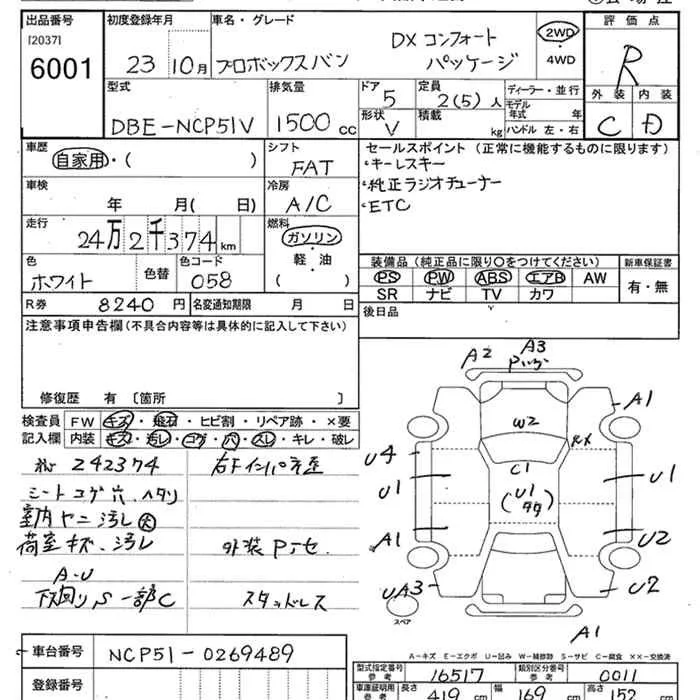 出品番号
[2037]
6001
初度登録年月
23 10月
車名・グレード
プロボックスバン DXコンフォートパッケージ
2WD・4WD
評価点
R
外装 内装
C D
型式
DBE-NCP51V
排気量
1500 cc
ドア
5
形状
V
定員
2(5)人
積載
kg
ディーラー・並行
モデル年式 年
ハンドル 左・右
車歴
自家用・( )
シフト
FAT
セールスポイント (正常に機能するものに限ります)
・キーレスキー
・純正ラジオチューナー
・ETC
車検
年 月( 日)
冷房
A/C
走行
24万2千374km
燃料
ガソリン・軽・油
( )
色
ホワイト
色替
色コード
058
装備品(純正品に限り○をつけてください)
PS PW ABS エアB AW
SR ナビ TV カワ
新車保証書
有・無
R券 8240円
名変通知期限 月 日
後日品
注意事項申告欄(不具合内容等は具体的に記入して下さい)
修復歴 有〔箇所 〕
検査員記入欄
FW キズ・飛石・ヒビ割・リペア跡・×要
内装 キズ・汚レ・コゲ・穴・スレ・キレ・破レ
242374
シートコゲ穴、ヘタリ
室内ヤニ汚レ大
荷室キズ、汚レ
A-U
下回りS 一部C
右Fインパネ歪
外装Pｼｾ
スタッドレス
A2
A3
A1
W2
C1
(U1タタ)
RX
U4
U1
A1
UA3
U1
U2
U2
A1
スペア
A-キズ E-エクボ U-凹み W-補修跡 S-サビ C-腐食 ××-交換済
車台番号
NCP51-0269489
登録番号
型式指定番号 参考
16517
類別区分番号 参考
0011
車庫証明用 参考
長さ 419 cm
幅 169 cm
高さ 152 cm